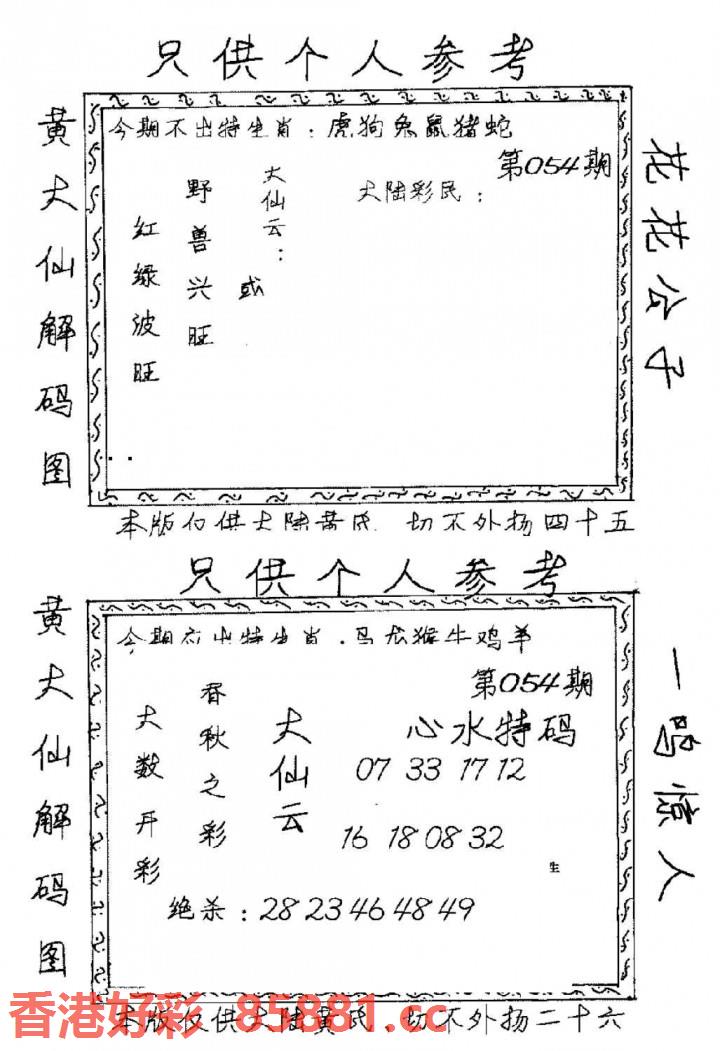 只供个人参考
黄大仙解码图
今期不出特生肖：虎狗兔鼠猪蛇
第054期
大陆彩民：
大仙云：
或
野兽兴旺
红绿波旺
花花公子
本版仅供大陆黄民 切不外扬四十五
只供个人参考
黄大仙解码图
今期应出特生肖.马龙猴牛鸡羊
第054期
心水特码
07 33 17 12
16 18 08 32
生
大仙云
春秋之彩
大数开彩
绝杀：28 23 46 48 49
一鸣惊人
香港好彩 85881.cc
本版仅供大陆黄民，切不外扬二十六